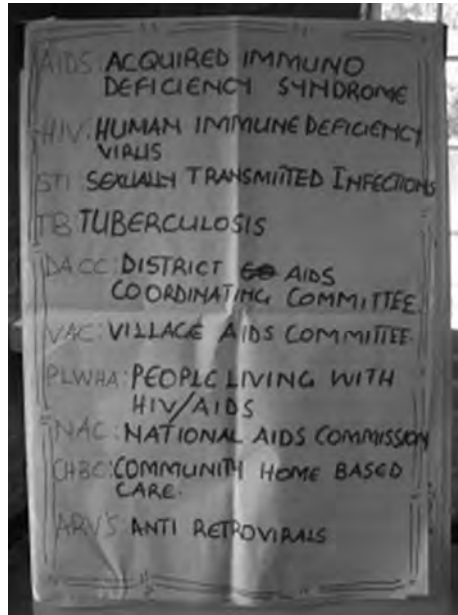 AIDS: ACQUIRED IMMUNO
DEFICIENCY SYNDROME
HIV: HUMAN IMMUNE DEFICIENCY
VIRUS
STI: SEXUALLY TRANSMIITED INFECTIONS
TB TUBERCULOSIS
DACC: DISTRICT AIDS
COORDINATING COMMITTEE.
VAC: VILLAGE AIDS COMMITTEE.
PLWHA: PEOPLE LIVING WITH
HIV/AIDS
NAC: NATIONAL AIDS COMMISSION
CHBC: COMMUNITY HOME BASED
CARE.
ARV'S: ANTI RETROVIRALS